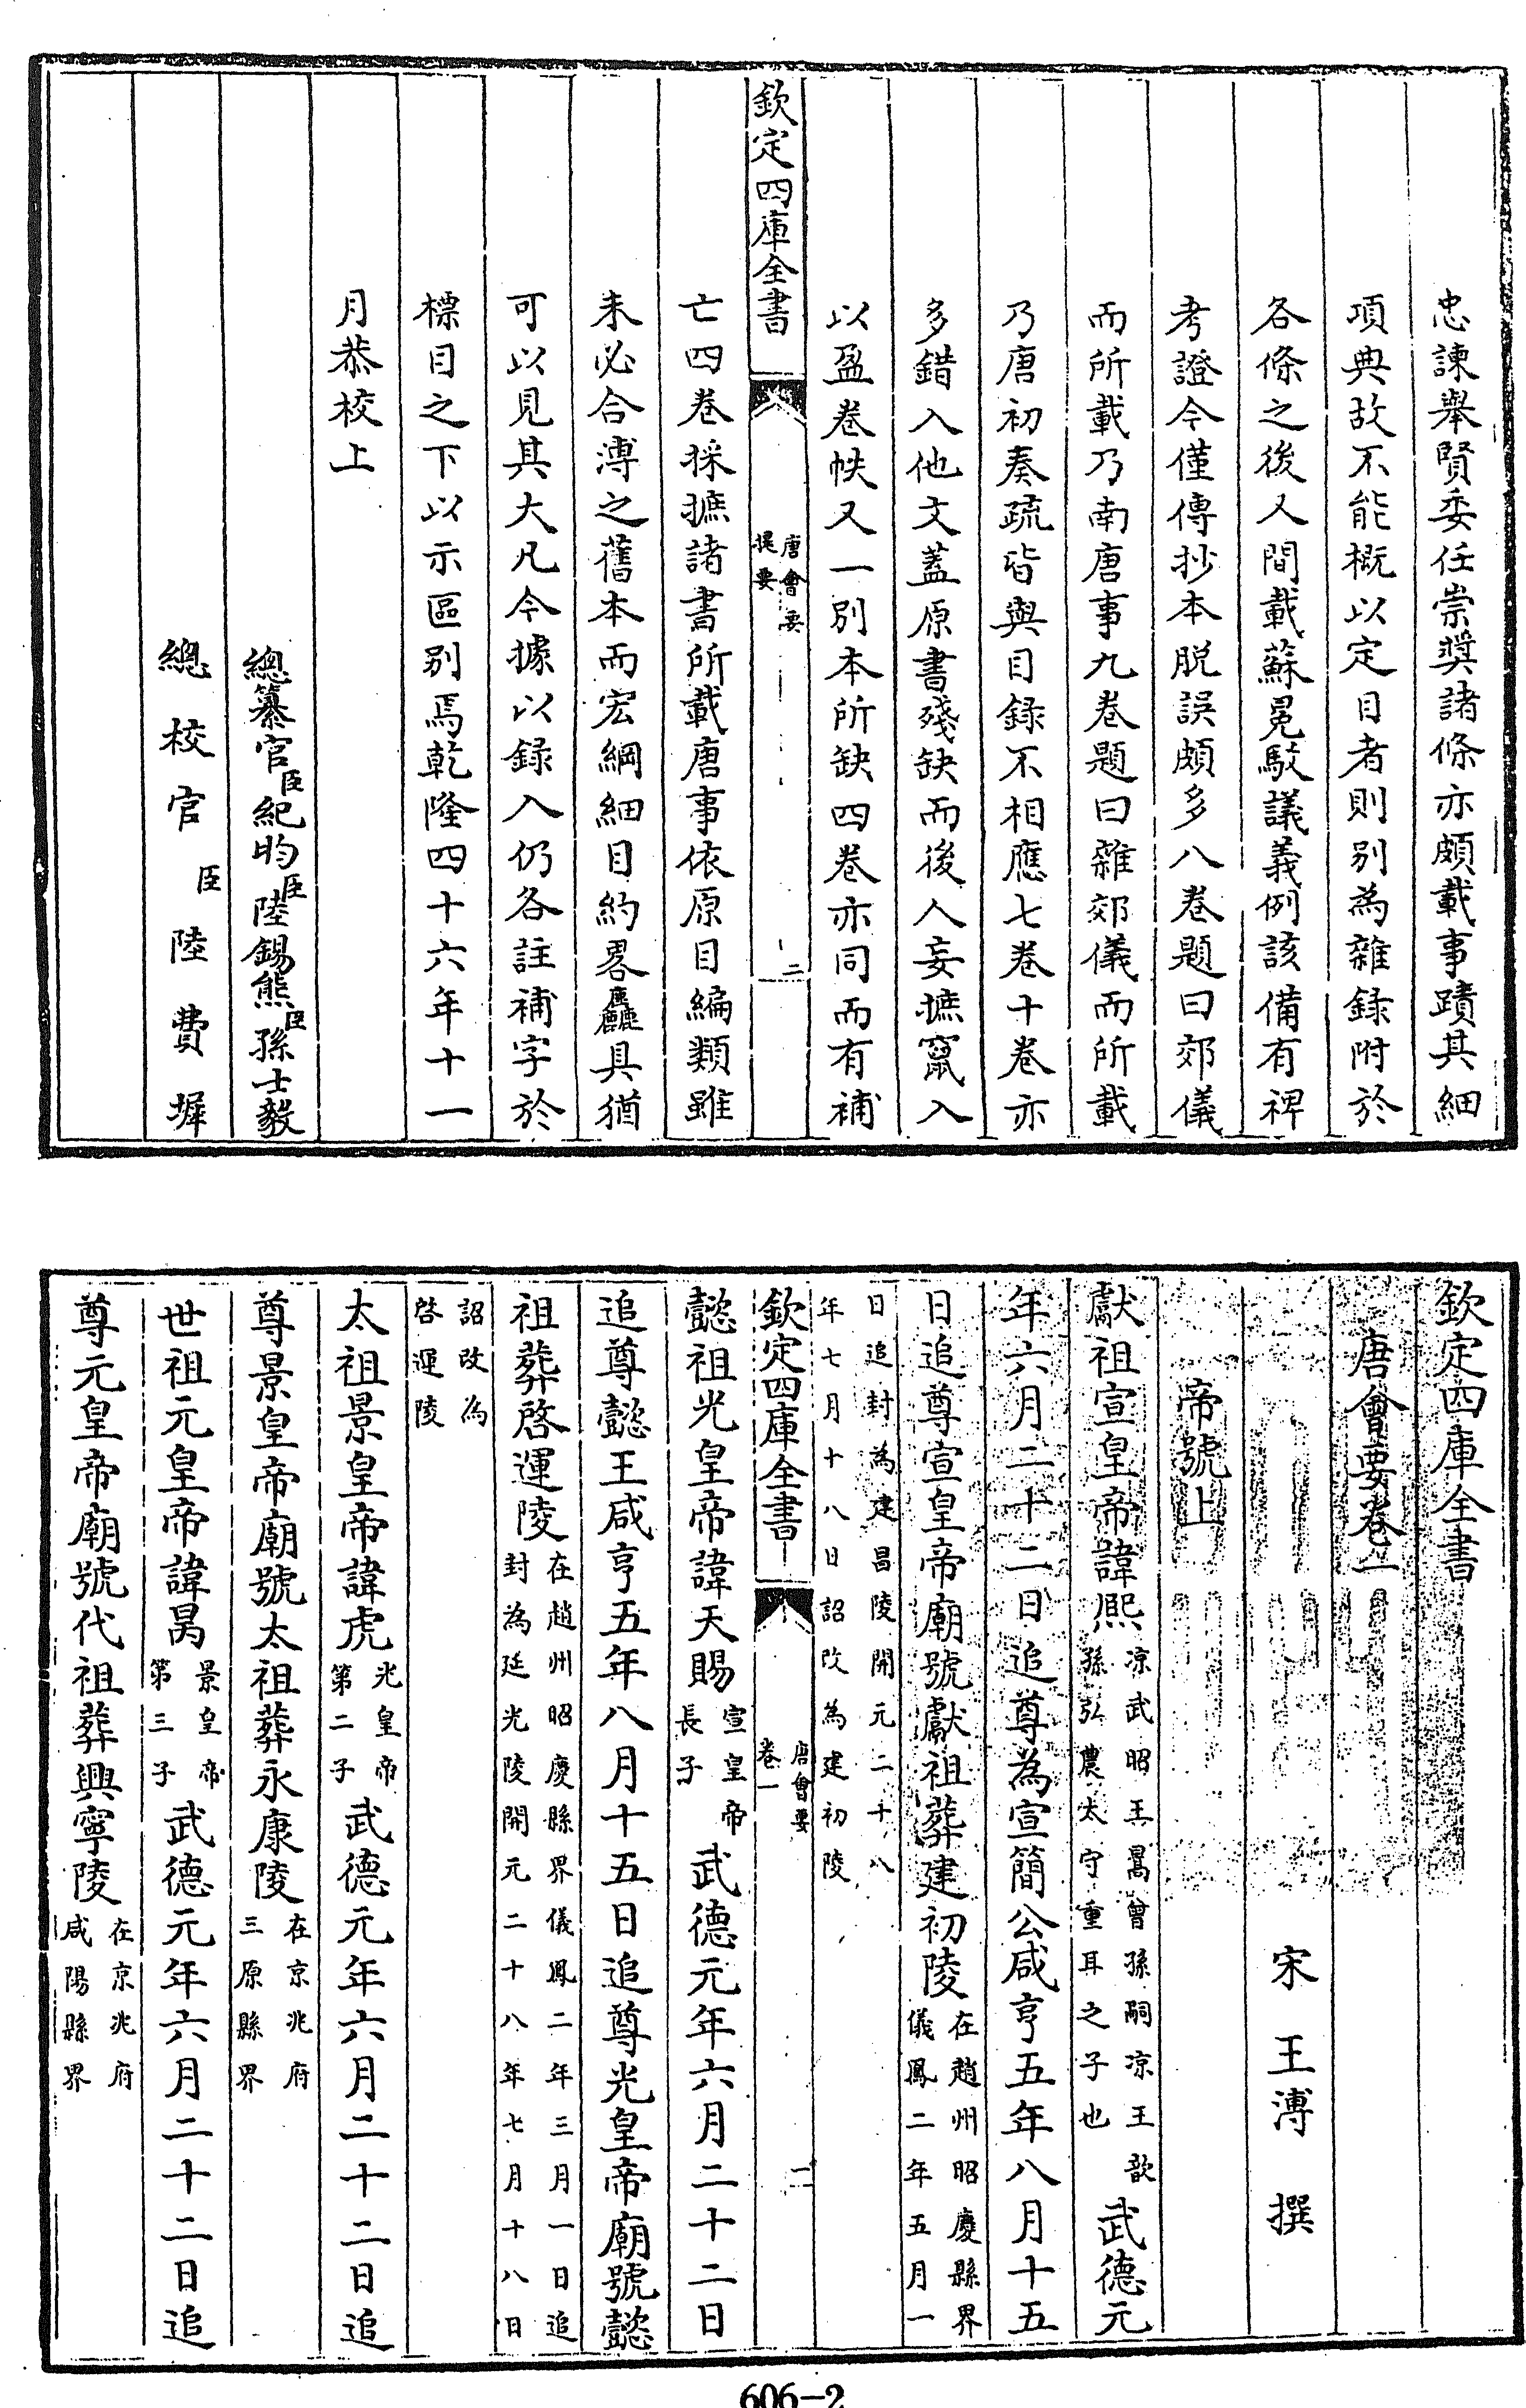 忠諫舉賢委任崇奬諸條亦頗載事蹟其細
項典故不能概以定目者則別為雜録附於
各條之後又間載蘇冕駮議義例該備有裨
考證今僅傳抄本脱誤頗多八卷題曰郊儀
而所載乃南唐事九卷題曰雜郊儀而所載
乃唐初奏疏皆與目録不相應七卷十卷亦
多錯入他文蓋原書殘缺而後人妄摭竄入
以盈卷帙又一別本所缺四卷亦同而有補
欽定四庫全書
唐會要
提要
二
亡四卷採摭諸書所載唐事依原目編類雖
未必合溥之舊本而宏綱細目約畧麤具猶
可以見其大凡今據以録入仍各註補字於
標目之下以示區别焉乾隆四十六年十一
月恭校上
總纂官臣紀昀臣陸錫熊臣孫士毅
總校官臣陸費墀
欽定四庫全書
唐會要卷一
宋 王溥 撰
帝號上
獻祖宣皇帝諱熙涼武昭王暠曾孫嗣涼王歆孫弘農太守重耳之子也武德元
年六月二十二日追尊為宣簡公咸亨五年八月十五
日追尊宣皇帝廟號獻祖葬建初陵在趙州昭慶縣界儀鳳二年五月一
日追封為建昌陵開元二十八年七月十八日詔改為建初陵
欽定四庫全書
唐會要
卷一
一
懿祖光皇帝諱天賜宣皇帝長子武德元年六月二十二日
追尊懿王咸亨五年八月十五日追尊光皇帝廟號懿
祖葬啓運陵在趙州昭慶縣界儀鳳二年三月一日追封為延光陵開元二十八年七月十八日
詔改為啓運陵
太祖景皇帝諱虎光皇帝第二子武德元年六月二十二日追
尊景皇帝廟號太祖葬永康陵在京兆府三原縣界
世祖元皇帝諱昺景皇帝第三子武德元年六月二十二日追
尊元皇帝廟號代祖葬興寧陵在京兆府咸陽縣界
606-2